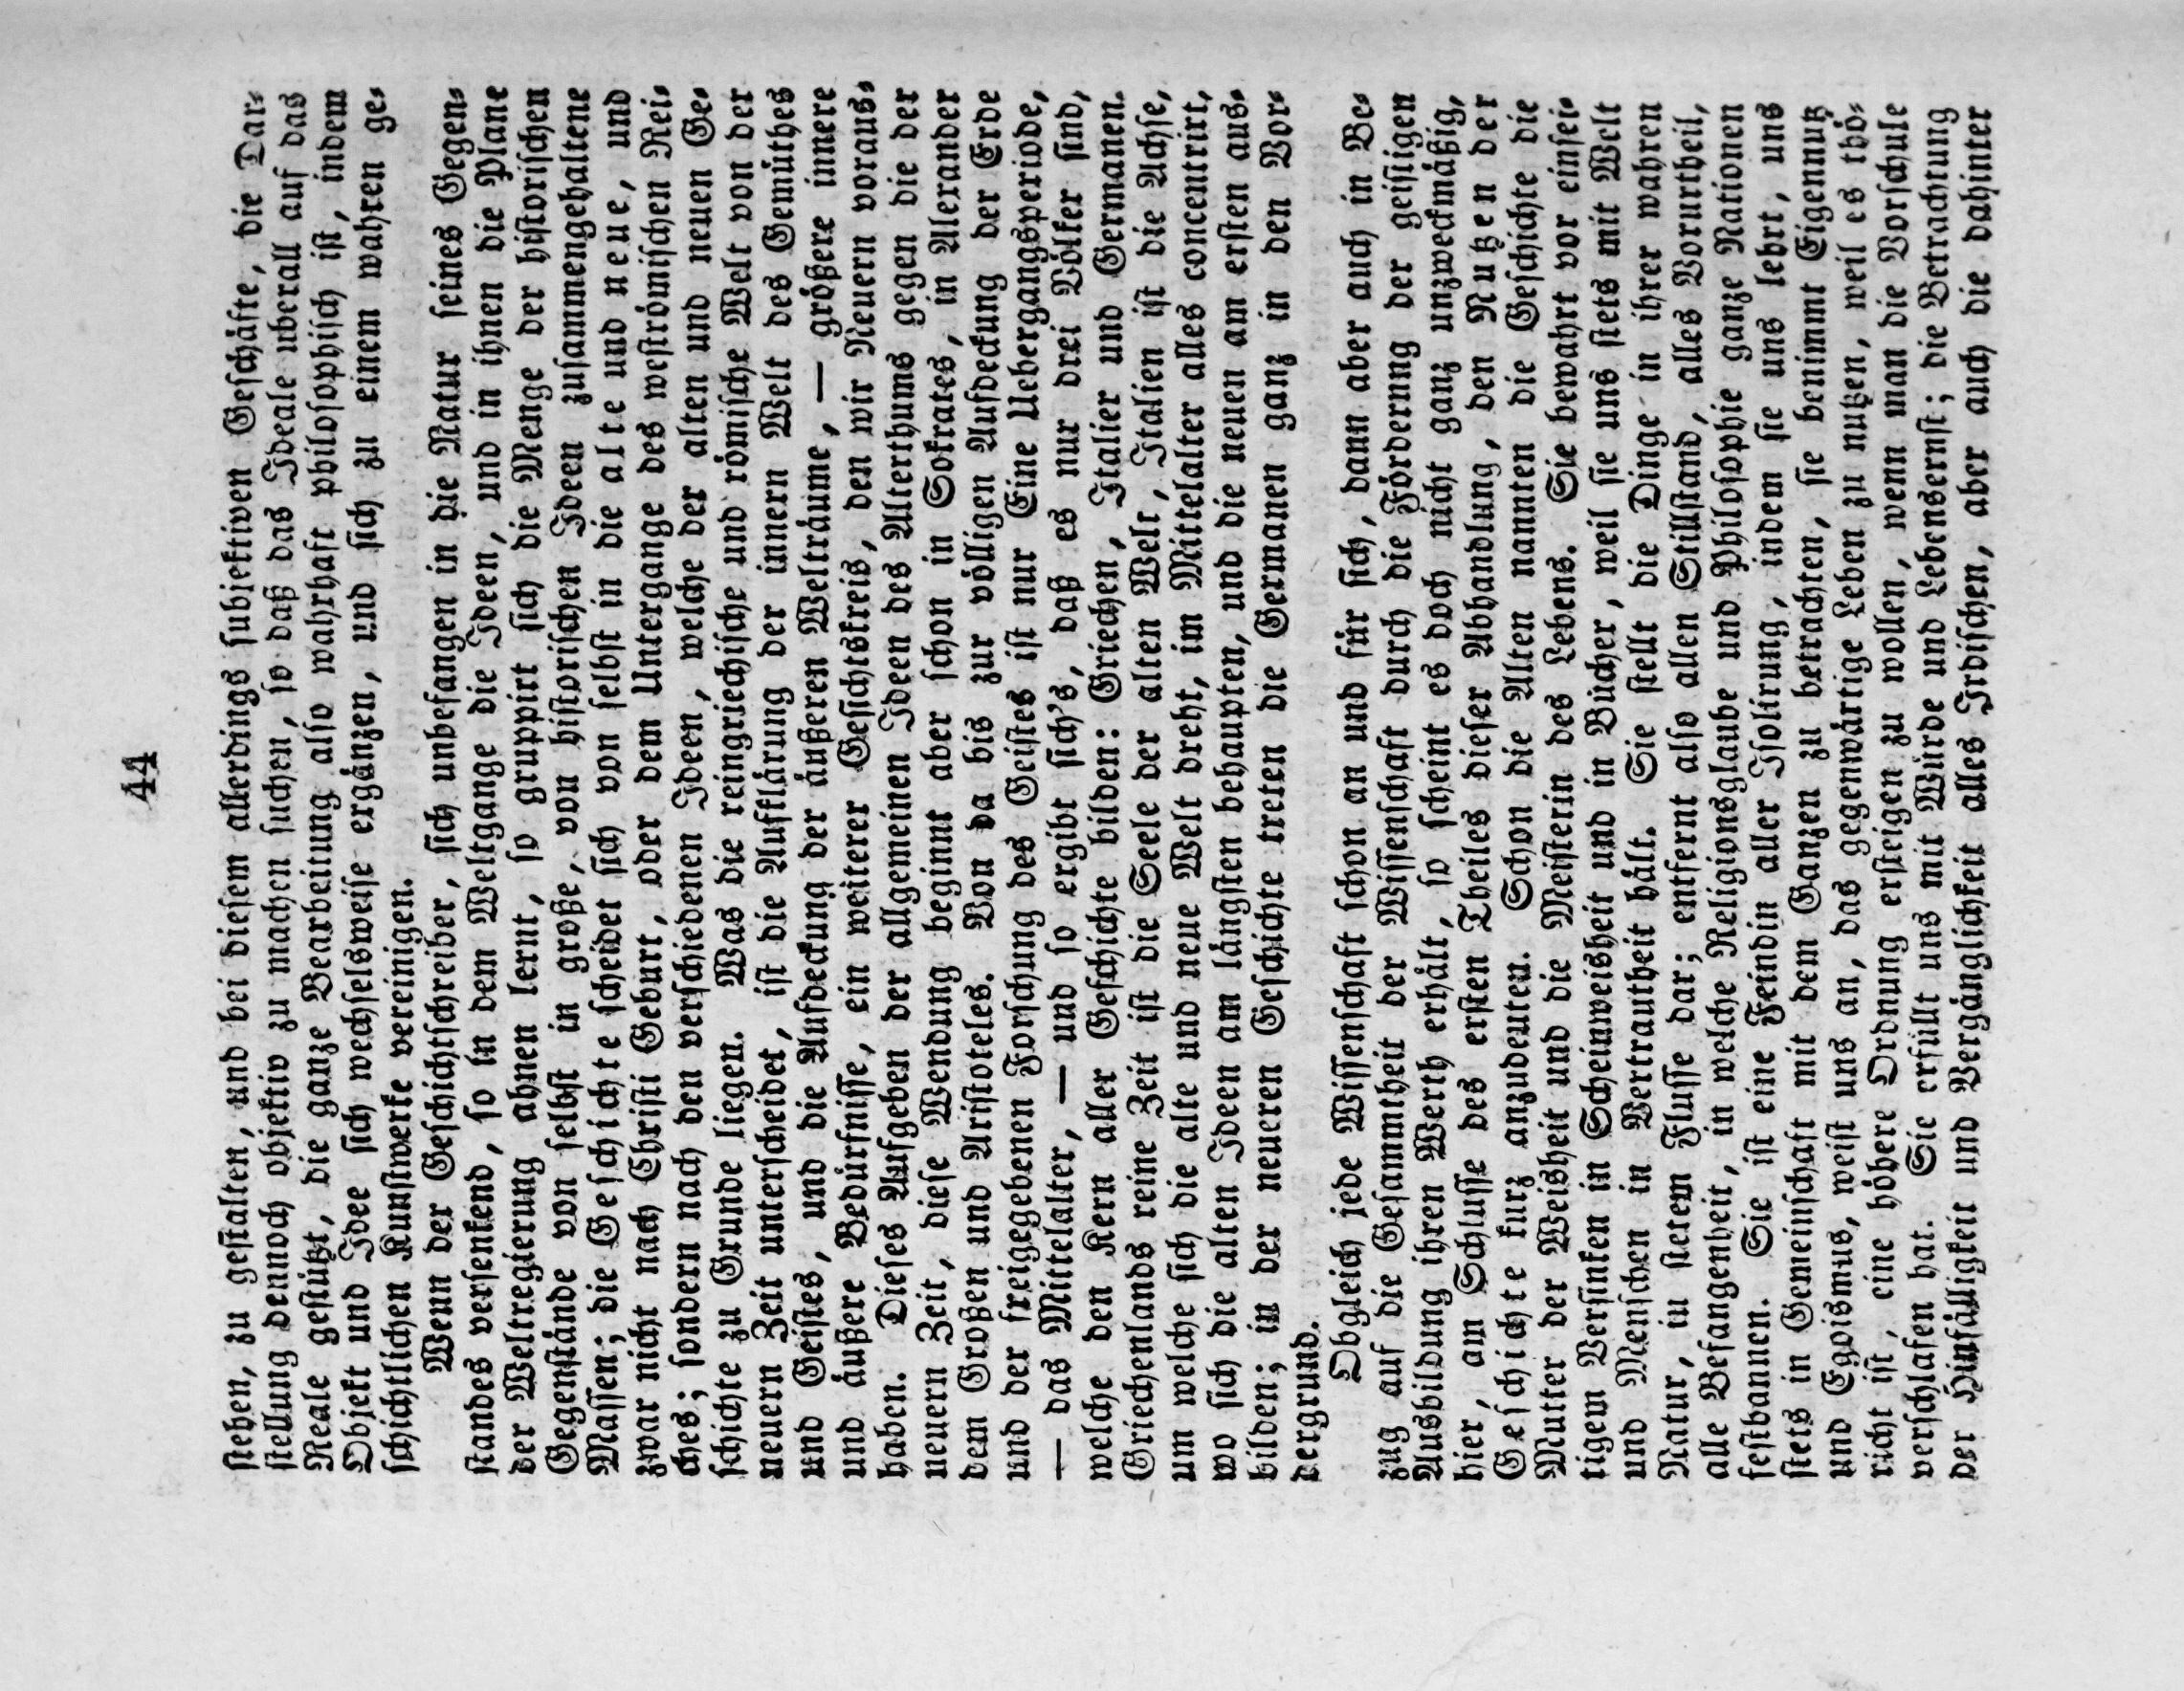 44
stehen, zu gestalten, und bei diesem allerdings subjektiven Geschäfte, die Dar-
stellung dennoch objektiv zu machen suchen, so daß das Ideale überall auf das
Reale gestützt, die ganze Bearbeitung also wahrhaft philosophisch ist, indem
Objekt und Idee sich wechselsweise ergänzen, und sich zu einem wahren ge-
schichtlichen Kunstwerke vereinigen.
Wenn der Geschichtschreiber, sich unbefangen in die Natur seines Gegen-
standes versenkend, so in dem Weltgange die Ideen, und in ihnen die Plane
der Weltregierung ahnen lernt, so gruppirt sich die Menge der historischen
Gegenstände von selbst in große, von historischen Ideen zusammengehaltene
Massen; die Geschichte scheidet sich von selbst in die alte und neue, und
zwar nicht nach Christi Geburt, oder dem Untergange des weströmischen Rei-
ches; sondern nach den verschiedenen Ideen, welche der alten und neuen Ge-
schichte zu Grunde liegen. Was die reingriechische und römische Welt von der
neuern Zeit unterscheidet, ist die Aufklärung der innern Welt des Gemüthes
und Geistes, und die Aufdeckung der äußeren Welträume, — größere innere
und äußere Bedürfnisse, ein weiterer Gesichtskreis, den wir Neuern voraus-
haben. Dieses Aufgeben der allgemeinen Ideen des Alterthums gegen die der
neuern Zeit, diese Wendung beginnt aber schon in Sokrates, in Alexander
dem Großen und Aristoteles. Von da bis zur völligen Aufdeckung der Erde
und der freigegebenen Forschung des Geistes ist nur Eine Uebergangsperiode,
— das Mittelalter, — und so ergibt sich's, daß es nur drei Völker sind,
welche den Kern aller Geschichte bilden: Griechen, Italier und Germanen.
Griechenlands reine Zeit ist die Seele der alten Welt, Italien ist die Achse,
um welche sich die alte und neue Welt dreht, im Mittelalter alles concentrirt,
wo sich die alten Ideen am längsten behaupten, und die neuen am ersten aus-
bilden; in der neueren Geschichte treten die Germanen ganz in den Vor-
dergrund.
Obgleich jede Wissenschaft schon an und für sich, dann aber auch in Be-
zug auf die Gesammtheit der Wissenschaft durch die Förderung der geistigen
Ausbildung ihren Werth erhält, so scheint es doch nicht ganz unzweckmäßig,
hier, am Schlusse des ersten Theiles dieser Abhandlung, den Nutzen der
Geschichte kurz anzudeuten. Schon die Alten nannten die Geschichte die
Mutter der Weisheit und die Meisterin des Lebens. Sie bewahrt vor einsei-
tigem Versinken in Scheinweisheit und in Bücher, weil sie uns stets mit Welt
und Menschen in Vertrautheit hält. Sie stellt die Dinge in ihrer wahren
Natur, in stetem Flusse dar; entfernt also allen Stillstand, alles Vorurtheil,
alle Befangenheit, in welche Religionsglaube und Philosophie ganze Nationen
festbannen. Sie ist eine Feindin aller Isolirung, indem sie uns lehrt, uns
stets in Gemeinschaft mit dem Ganzen zu betrachten, sie benimmt Eigennutz
und Egoismus, weist uns an, das gegenwärtige Leben zu nutzen, weil es thö-
richt ist, eine höhere Ordnung ersteigen zu wollen, wenn man die Vorschule
verschlafen hat. Sie erfüllt uns mit Würde und Lebensernst; die Betrachtung
der Hinfälligkeit und Vergänglichkeit alles Irdischen, aber auch die dahinter